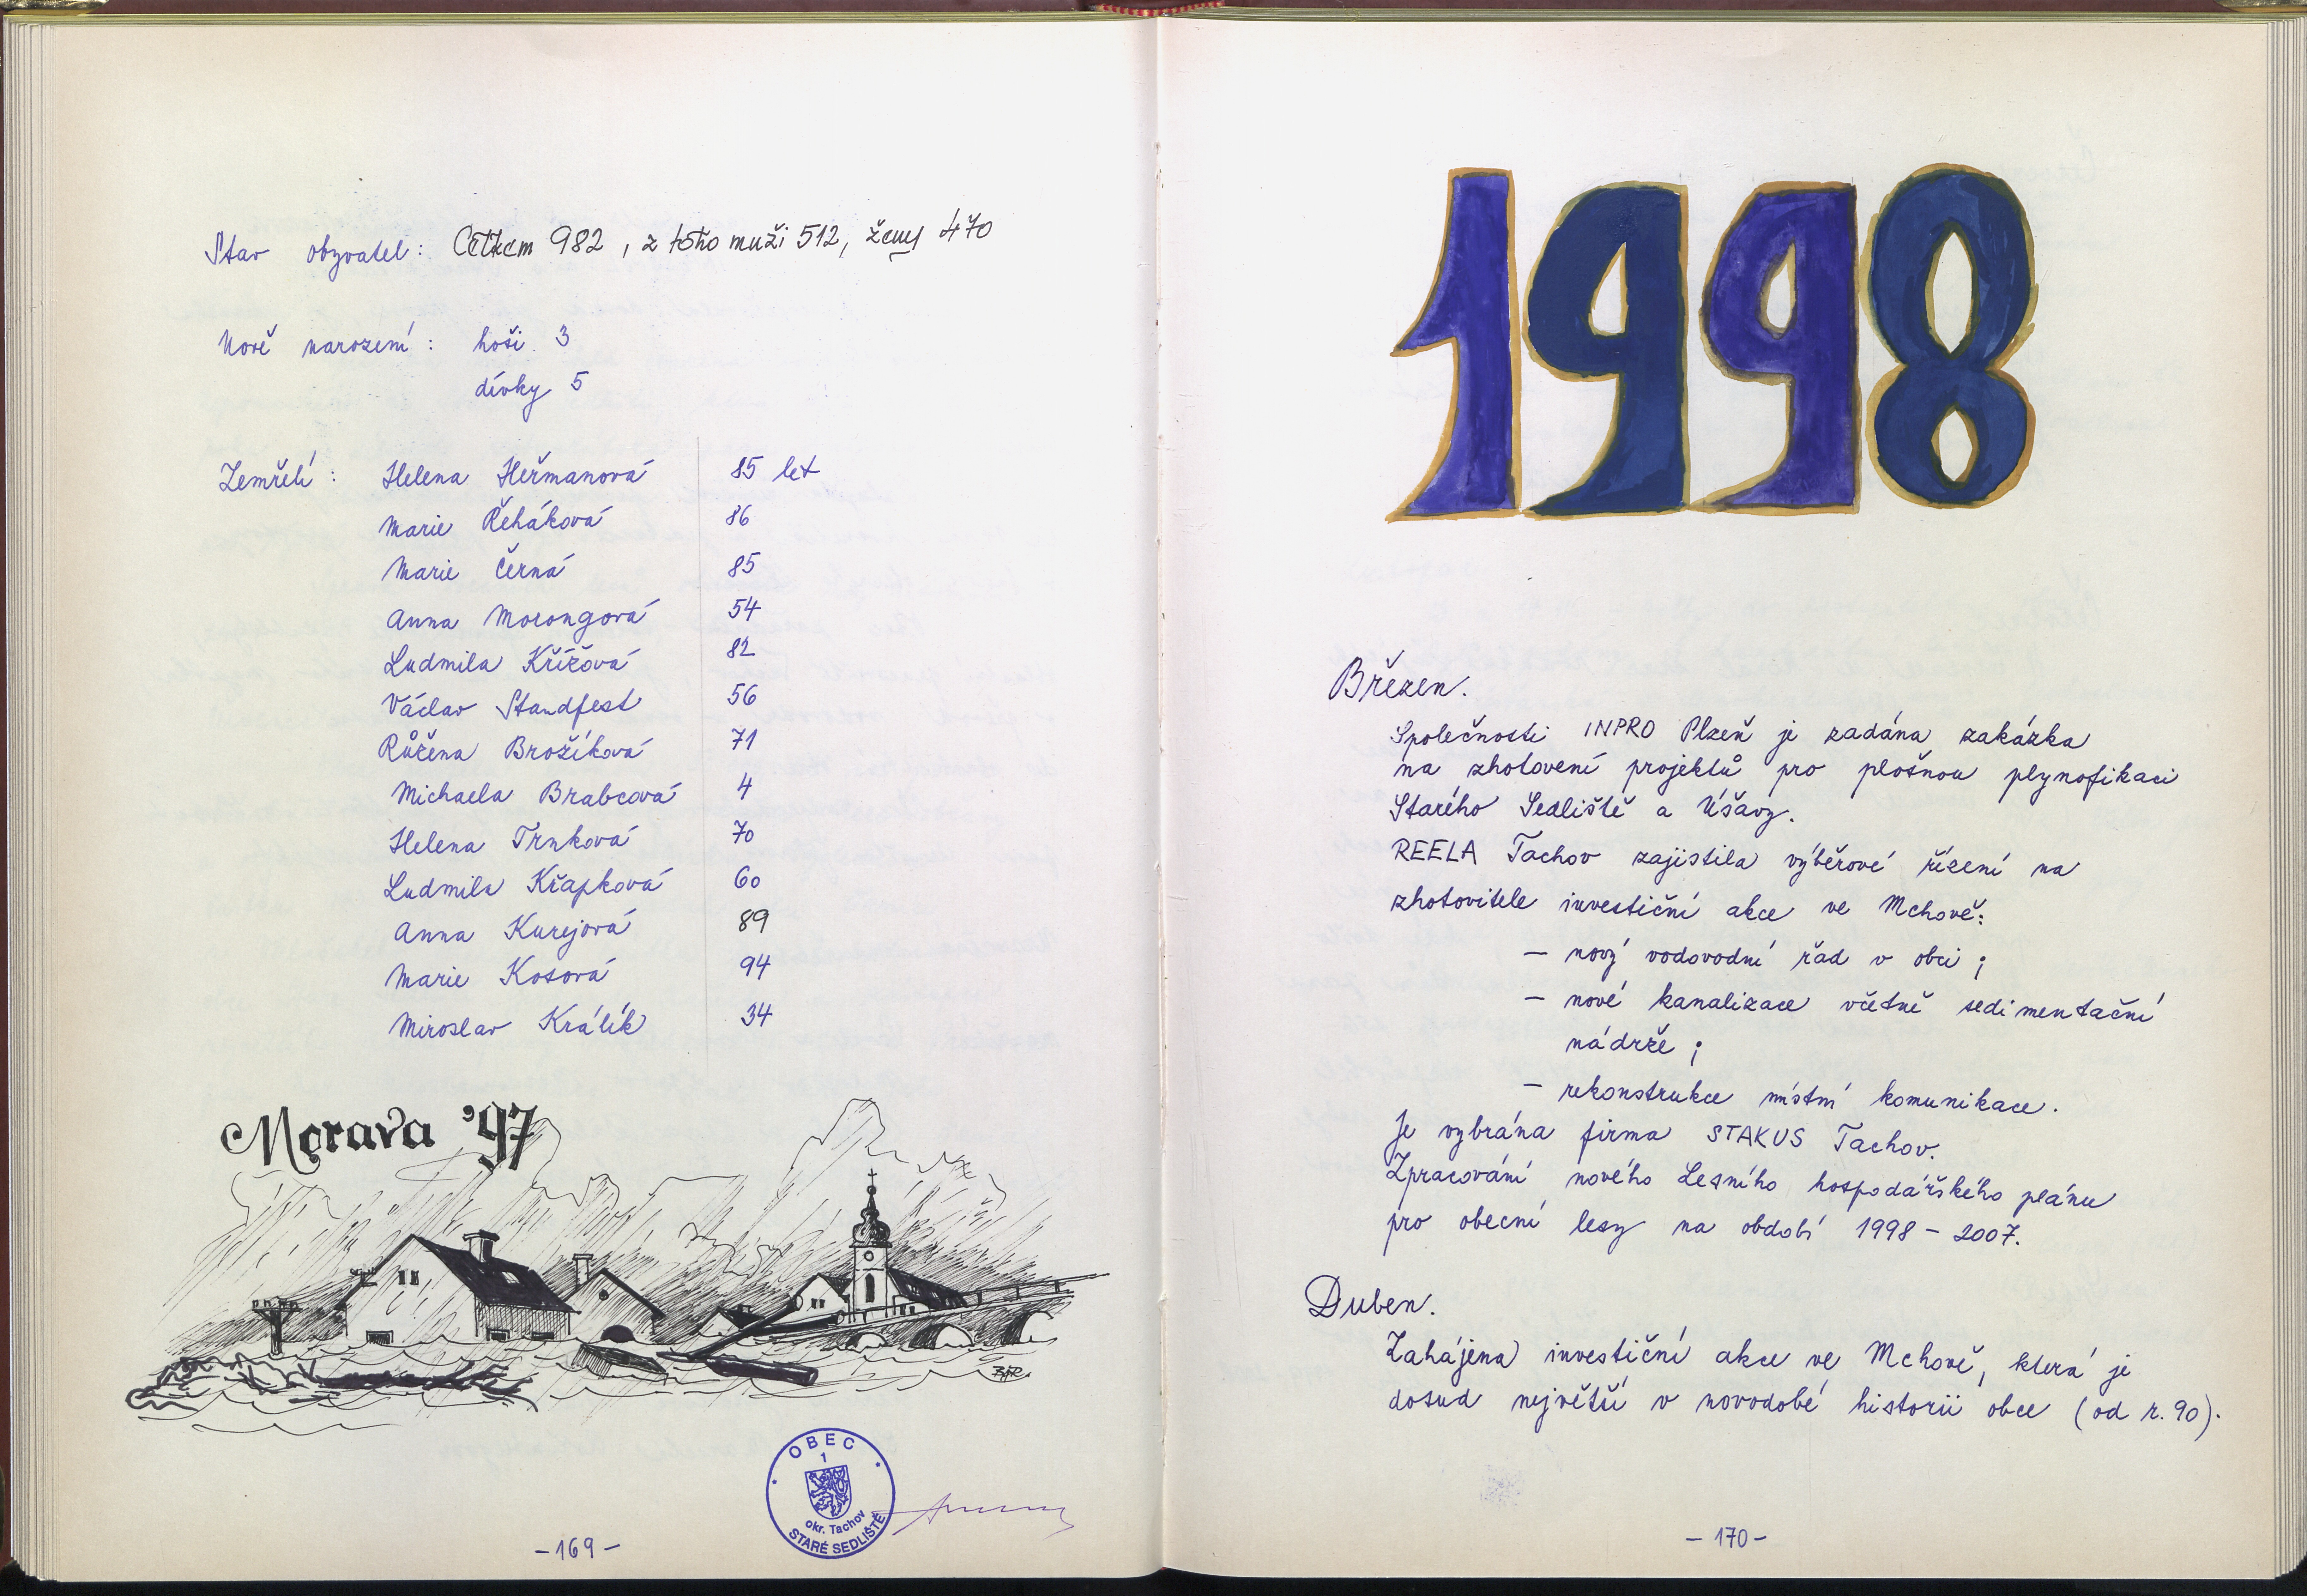 Stav obyvatel: Celkem 982, z toho muži 512, ženy 470
Nově narození: hoši 3
dívky 5
Zemřelí: Helena Heřmanová 85 let
Marie Řeháková 86
Marie Černá 85
Anna Morongová 54
Ludmila Křížová 82
Václav Standfest 56
Růžena Brožíková 71
Michaela Brabcová 4
Helena Trnková 70
Ludmila Křapková 60
Anna Kurejová 89
Marie Kosová 94
Miroslav Králík 34
Morava '97
BAR.
OBEC
1
okr. Tachov
STARÉ SEDLIŠTĚ
-169-
1998
Březen.
Společnosti INPRO Plzeň je zadána zakázka
na zhotovení projektů pro plošnou plynofikaci
Starého Sedliště a Úšavy.
REELA Tachov zajistila výběrové řízení na
zhotovitele investiční akce ve Mchově:
- nový vodovodní řad v obci;
- nové kanalizace včetně sedimentační
nádrže;
- rekonstrukce místní komunikace.
Je vybrána firma STAKUS Tachov.
Zpracování nového Lesního hospodářského plánu
pro obecní lesy na období 1998 - 2007.
Duben.
Zahájena investiční akce ve Mchově, která je
dosud největší v novodobé historii obce (od r. 90).
-170-